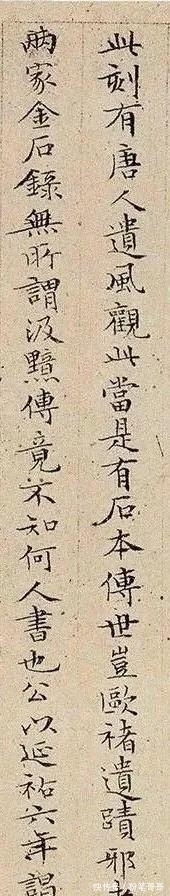 此刻有唐人遺風觀此當是有石本傳世豈歐褚遺蹟邪
兩家金石錄無所謂汲黯傳竟不知何人書也公以延祐六年謁